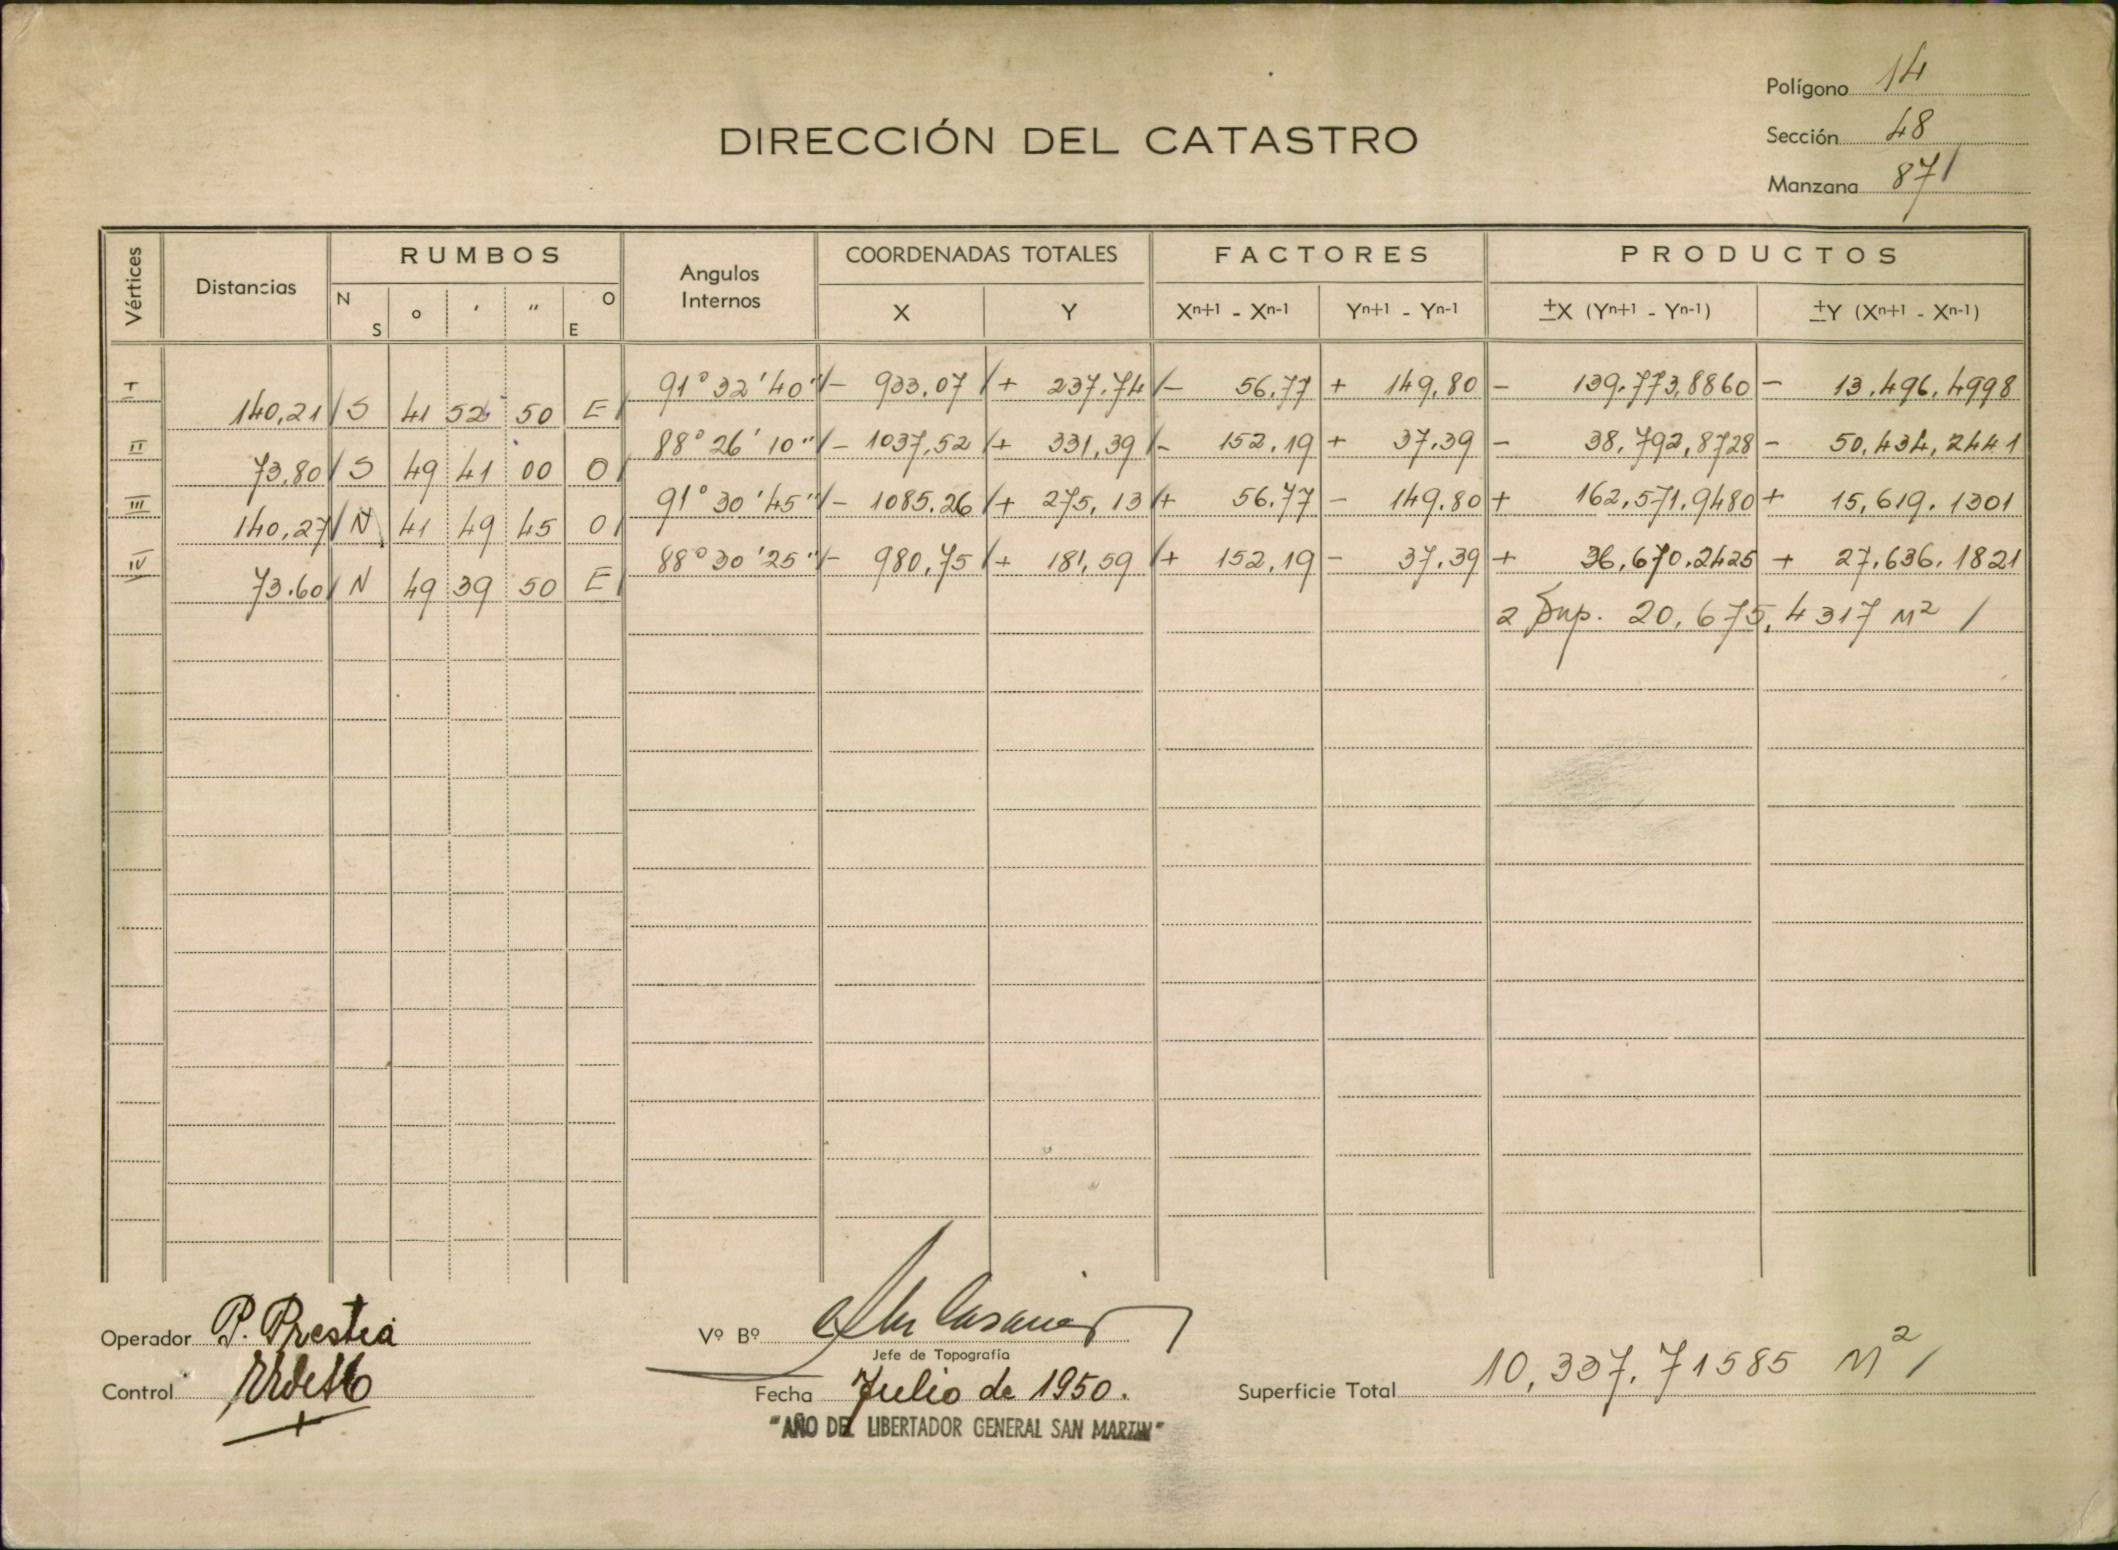 Polígono 14
DIRECCIÓN DEL CATASTRO
Sección 48
Manzana 871
Vértices Distancias RUMBOS Angulos Internos COORDENADAS TOTALES FACTORES PRODUCTOS
N S o ' " O E X Y Xn+1 - Xn-1 Yn+1 - Yn-1 ±X (Yn+1 - Yn-1) ±Y (Xn+1 - Xn-1)
I 91° 32' 40" - 933,07 + 237.74 - 56,77 + 149,80 - 139.773,8860 - 13.496,4998
140,21 S 41 52 50 E
II 88° 26' 10" - 1037,52 + 331,39 - 152,19 + 37,39 - 38,792,8728 - 50,434,2441
73,80 S 49 41 00 O
III 91° 30' 45" - 1085.26 + 275,13 + 56.77 - 149.80 + 162,571,9480 + 15,619.1301
140,27 N 41 49 45 O
IV 88° 30' 25" - 980,75 + 181,59 + 152,19 - 37.39 + 36,670.2425 + 27.636.1821
73.60 N 49 39 50 E
2 Sup. 20,675,4317 M²
Operador P. Prestia
Vº Bº
Jefe de Topografía
Control
Fecha Julio de 1950.
Superficie Total 10,337.71585 M²
"AÑO DEL LIBERTADOR GENERAL SAN MARTIN"